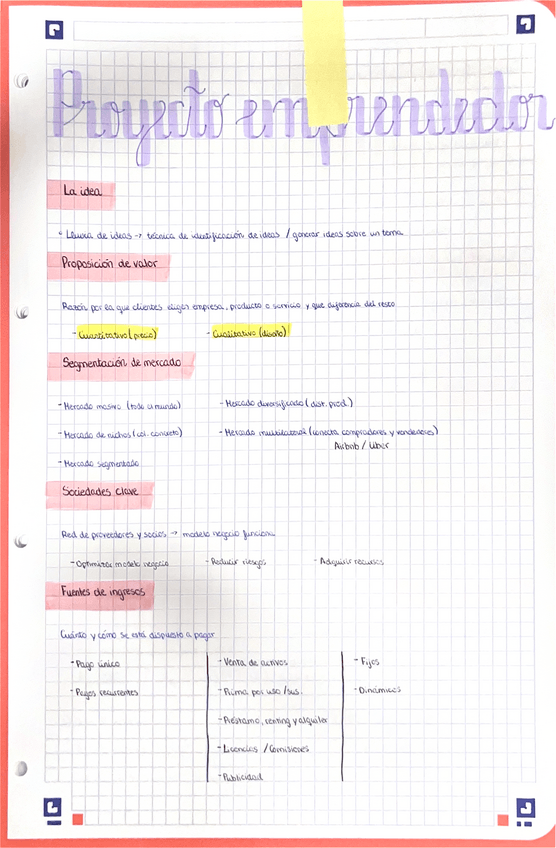 Proyecto emprendedor
La idea
° Lluvia de ideas → técnica de identificación de ideas / generar ideas sobre un tema
Proposición de valor
Razón por la que clientes eligen empresa, producto o servicio y que diferencia del resto
- Cuantitativo (precio) - Cualitativo (diseño)
Segmentación de mercado
- Mercado masivo (todo el mundo) - Mercado diversificado (dist. prod.)
- Mercado de nichos (col. concreto) - Mercado multilateral (conecta compradores y vendedores)
Airbnb / Uber
- Mercado segmentado
Sociedades clave
Red de proveedores y socios → modelo negocio funciona
- Optimizar modelo negocio - Reducir riesgos - Adquirir recursos
Fuentes de ingresos
Cuánto y cómo se está dispuesto a pagar
- Pago único - Venta de activos - Fijos
- Pagos recurrentes - Prima por uso / sus. - Dinámicos
- Préstamo, renting y alquiler
- Licencias / Comisiones
- Publicidad